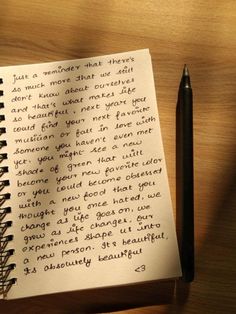 just a reminder that there's
so much more that we still
don't know about ourselves
and that's what makes life
so beautiful, next year you
could find your next favorite
musician or fall in love with
someone you haven't even met
yet. you might see a new
shade of green that will
become your new favorite color
or you could become obsessed
with a new food that you
thought you once hated, we
change as life goes on, we
grow as life changes. Our
experiences shape us into
a new person. Its beautiful,
its absolutely beautiful
<3